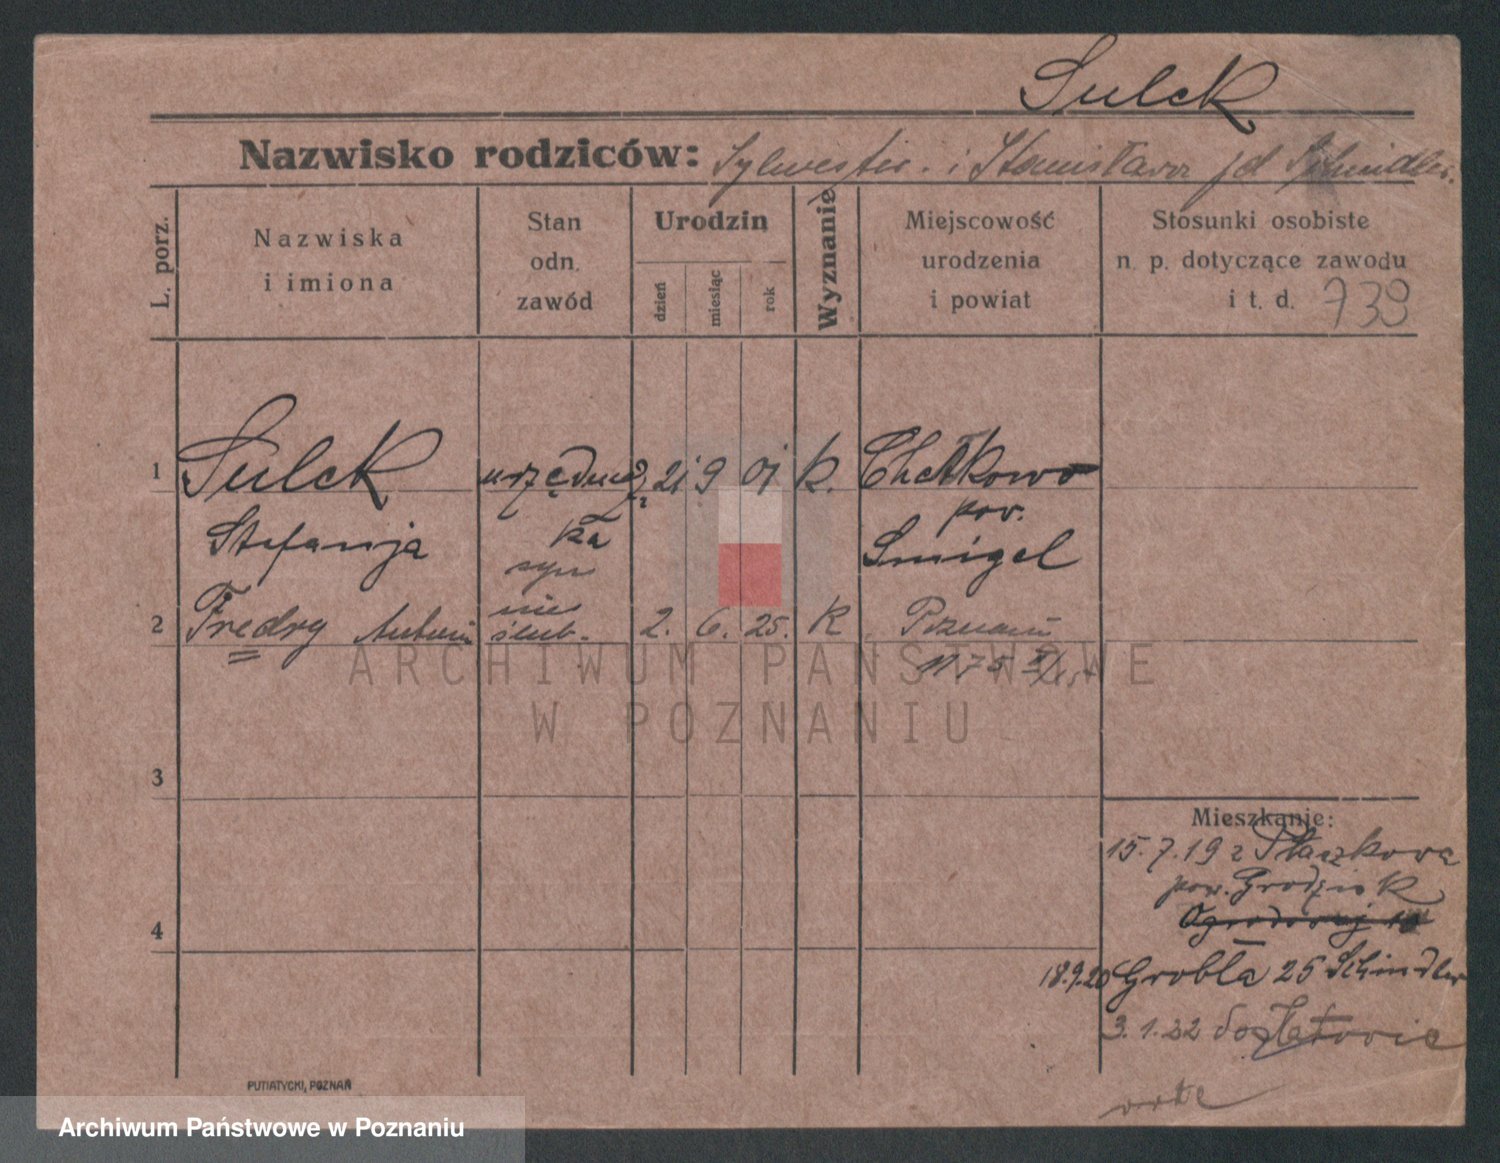 Sulck
Nazwisko rodziców: Sylwester i Stanisława z d. Schindler.
L. porz.
Nazwiska
i imiona
Stan
odn.
zawód
Urodzin
dzień
miesiąc
rok
Wyznanie
Miejscowość
urodzenia
i powiat
Stosunki osobiste
n. p. dotyczące zawodu
i t. d. 739
1 Sulck urzędnicz 21 9 01 k.
ka
Stefanja
pow.
Smigel
syn
nie
ślub.
2 Fredry Antoni 2. 6. 25. k Poznań
3
4
Mieszkanie:
15.7.19 z
pow. Grodzisk
Ogrodowej 10
18.9.20 Grobla 25 Schindler
3.1.22
PUTIATYCKI, POZNAŃ
ARCHIWUM PAŃSTWOWE
W POZNANIU
Archiwum Państwowe w Poznaniu